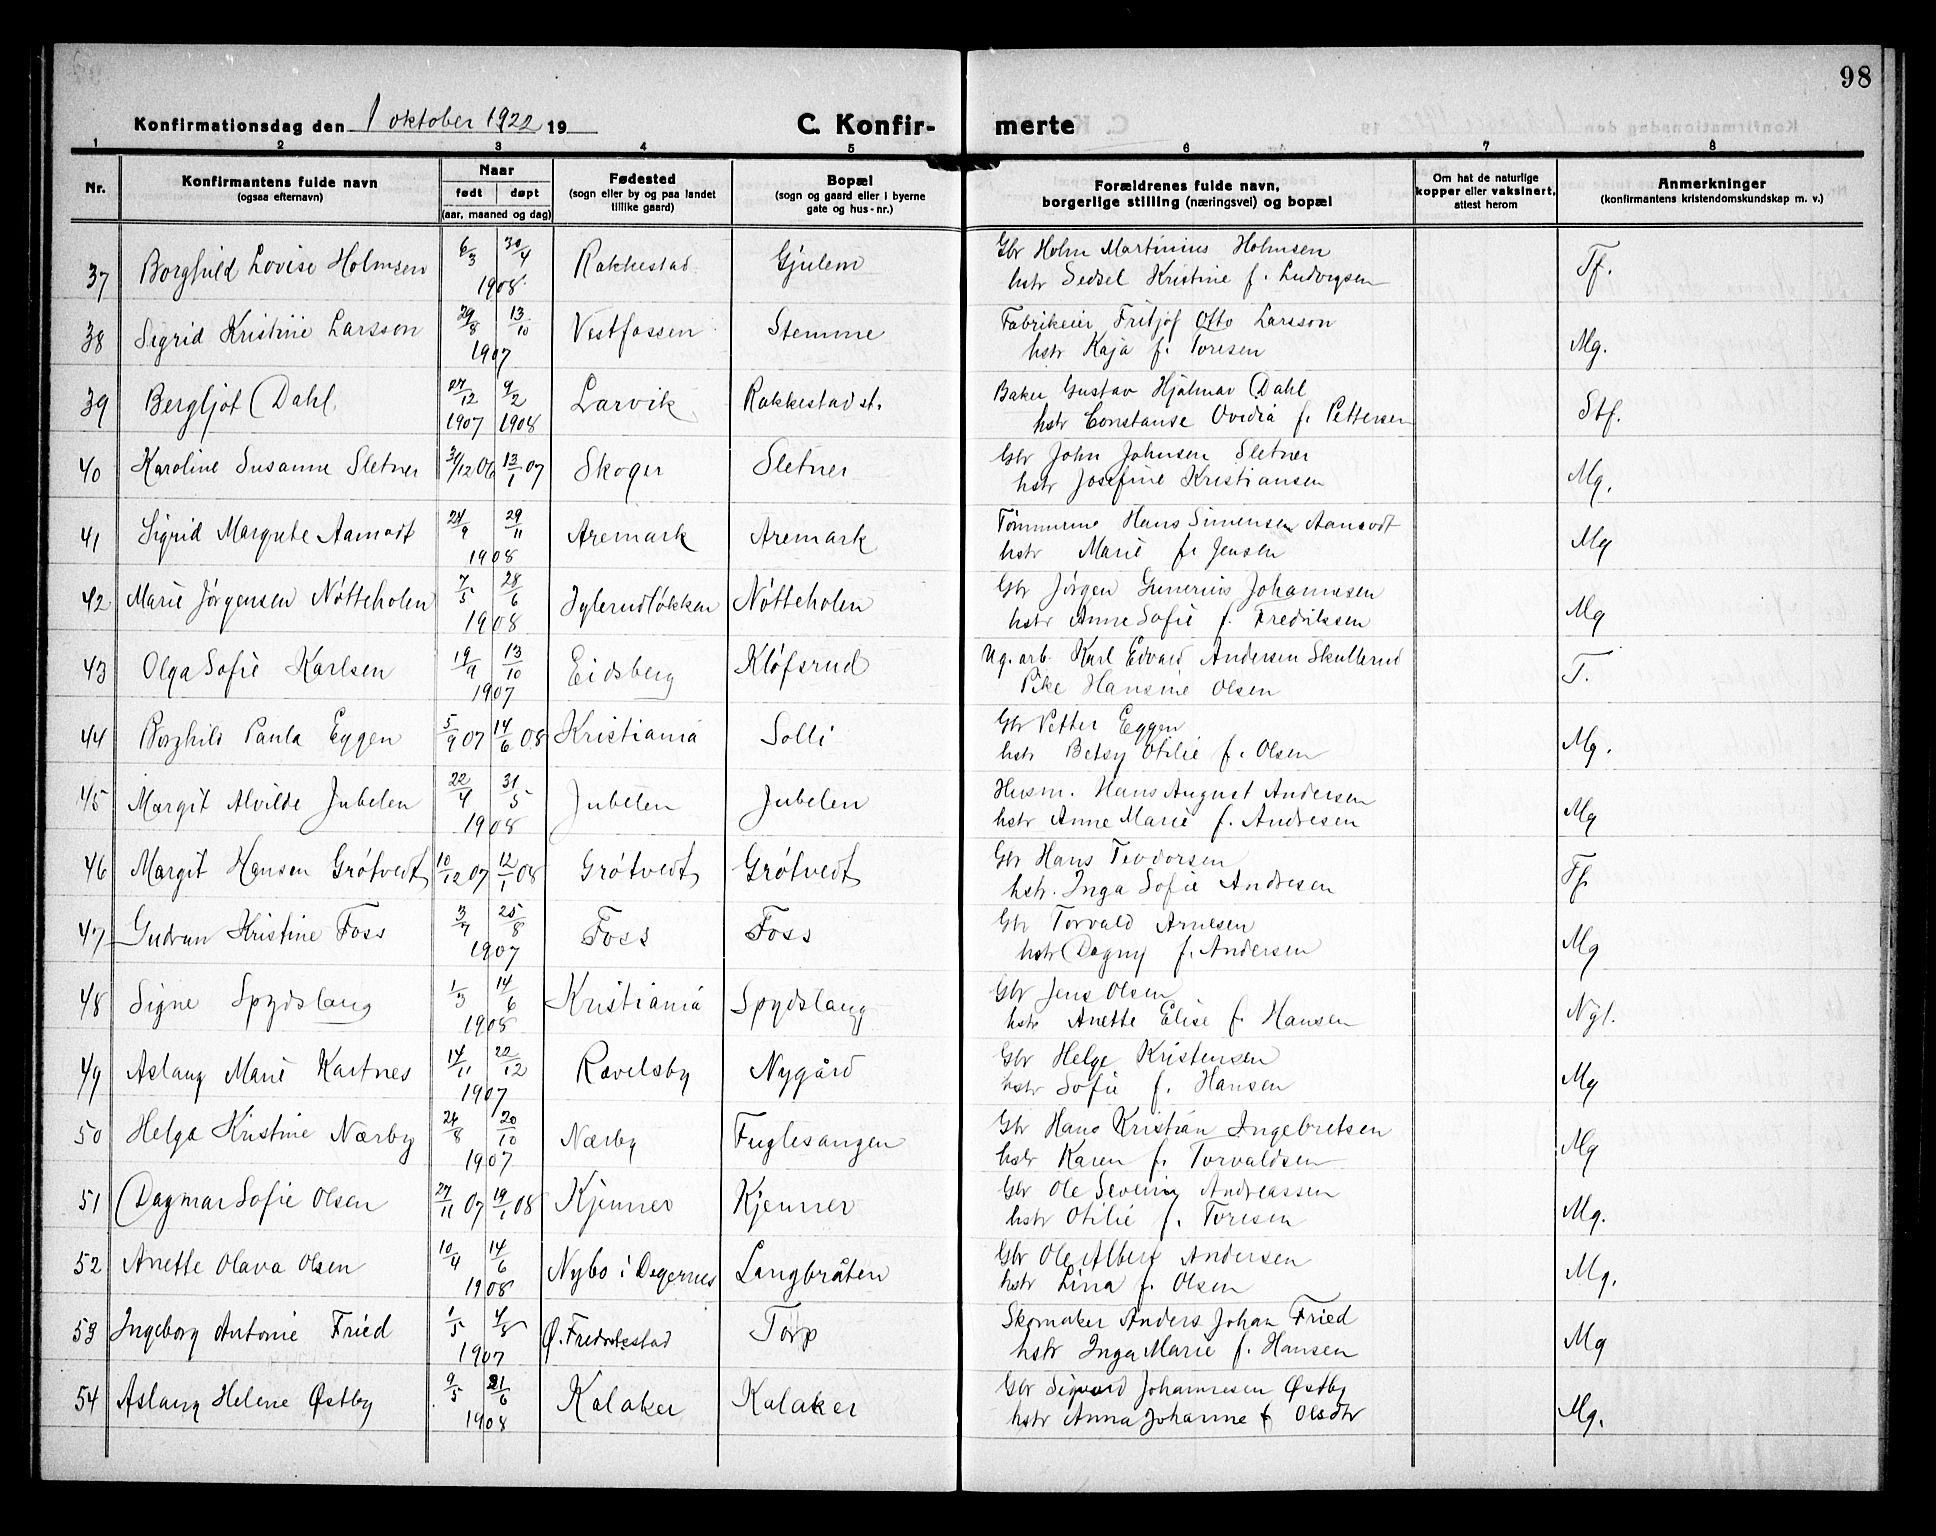 98
Konfirmationsdag den 1 oktober 1922 19
C. Konfir-merte
1 2 3 4 5 6 7 8
Nr.
Konfirmantens fulde navn
(ogsaa efternavn)
Naar
født døpt
(aar, maaned og dag)
Fødested
(sogn eller by og paa landet
tillike gaard)
Bopæl
(sogn og gaard eller i byerne
gate og hus-nr.)
Forældrenes fulde navn,
borgerlige stilling (næringsvei) og bopæl
Om hat de naturlige
kopper eller vaksinert,
attest herom
Anmerkninger
(konfirmantens kristendomskundskap m. v.)
37 Borghild Lovise Holmsen 6/3 30/4 1908 Rakkestad Gjulem Gbr Holm Martinius Holmsen
hstr Sedsel Kristine f. Ludvigsen Tf.
38 Sigrid Kristine Larsson 29/8 13/10 1907 Vestfossen Stemme Fabrikeier Fritjof Otto Larsson
hstr Kaja f. Toresen Mg.
39 Bergljot Dahl 27/12 1907 9/2 1908 Larvik Rakkestad st. Baker Gustav Hjalmar Dahl
hstr Constanse Ovedia f. Pettersen Stf.
40 Karoline Susanne Sletner 31/12 06 13/1 07 Skoger Sletner Gbr John Johnsen Sletner
hstr Josefine Kristiansen Mg.
41 Sigrid Margrete Aamodt 24/9 29/11 1908 Aremark Aremark Hans Simensen Aamodt
hstr Marie f. Jensen Mg
42 Marie Jørgensen Nøtteholen 7/5 28/6 1908 Nøtteholen Gbr Jørgen Gunerius Johannesen
hstr Anne Sofie f. Fredriksen Mg
43 Olga Sofie Karlsen 19/9 13/10 1907 Eidsberg Kløfsrud Ug. arb. Karl Edvard Andersen Skullerud
Pike Hansine Olsen T.
44 Borghild Paula Eggen 5/9 07 14/6 08 Kristiania Solli Gbr Petter Eggen
hstr Betsy Otilie f. Olsen Mg.
45 Margit Alvilde Jubelen 22/4 31/5 1908 Jubelen Jubelen Husm. Hans August Andersen
hstr Anne Marie f. Andresen Mg
46 Margit Hansen Grøtvedt 10/12 07 12/1 08 Grøtvedt Grøtvedt Gbr Hans Teodorsen
hstr. Inga Sofie Andresen Tf.
47 Gudrun Kristine Foss 3/7 25/8 1907 Foss Foss Gbr Torvald Arnesen
hstr Dagny f. Andersen Mg
48 Signe Spydslaug 1/3 14/6 1908 Kristiania Spydslaug Gbr Jens Olsen
hstr Anette Elise f. Hansen Ngl.
49 Aslaug Marie Kartnes 14/11 22/12 1907 Rævelsby Nygård Gbr Helge Kristensen
hstr Sofie f. Hansen Mg
50 Helga Kristine Nærby 24/8 20/10 1907 Nærby Fuglesangen Gbr Hans Kristian Ingebretsen
hstr Karen f. Torvaldsen Mg
51 Dagmar Sofie Olsen 27/11 07 19/1 08 Kjenner Kjenner Gbr Ole Severin Andreassen
hstr Otilie f. Toresen Mg.
52 Anette Olava Olsen 10/4 14/6 1908 Nybo i Degernes Langbråten Gbr Ole Albert Andersen
hstr Lina f. Olsen Mg.
53 Ingeborg Antonie Fried 1/5 4/8 1907 Ø. Fredrikstad Torp Skomaker Anders Johan Fried
hstr Inga Marie f. Hansen Mg
54 Aslaug Helene Østby 9/5 21/6 1908 Kalaker Kalaker Gbr Sigvard Johannesen Østby
hstr Anna Johanne f Olsdtr Mg.